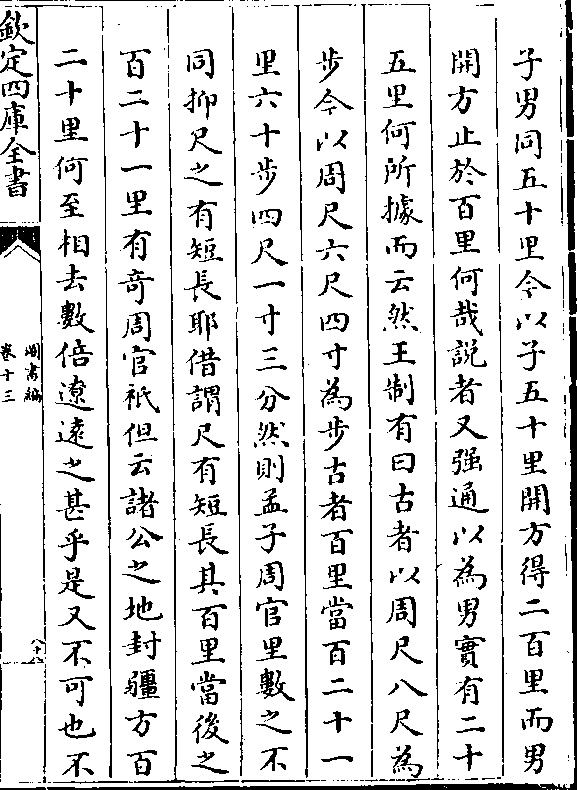 子男同五十里今以子五十里開方得二百里而男
開方止於百里何哉説者又强通以為男實有二十
五里何所據而云然王制有曰古者以周尺八尺為
步今以周尺六尺四寸為步古者百里當百二十一
里六十步四尺一寸三分然則孟子周官里數之不
同抑尺之有短長耶借謂尺有短長其百里當後之
百二十一里有奇周官祇但云諸公之地封疆方百
二十里何至相去數倍遼遠之甚乎是又不可也不
欽定四庫全書
圖書編
卷十三